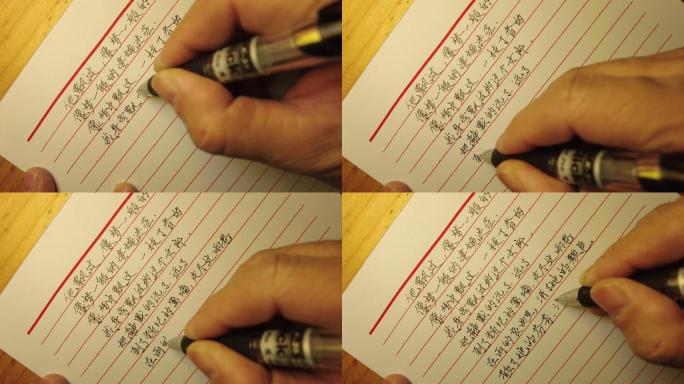 她飘过，像梦一般的
像梦一般的凄婉迷茫.
像梦中飘过 一枝丁香的
我身旁飘
她飘过，像梦一般的
像梦一般的凄婉迷茫.
像梦中飘过 一枝丁香的
我身旁飘过这个女郎.
她静默的远了、远了
她飘过，像梦一般的
像梦一般的凄婉迷茫.
像梦中飘过 一枝丁香的
我身旁飘过这个女郎.
她静默的远了、远了
到了颓圮的篱墙 走尽这雨巷
在雨
她飘过，像梦一般的
像梦一般的凄婉迷茫.
像梦中飘过 一枝丁香的
我身旁飘过这个女郎.
她静默的远了、远了
到了颓圮的篱墙 走尽这雨巷
在雨的哀曲里 消了她的颜色
散了她的芬芳.